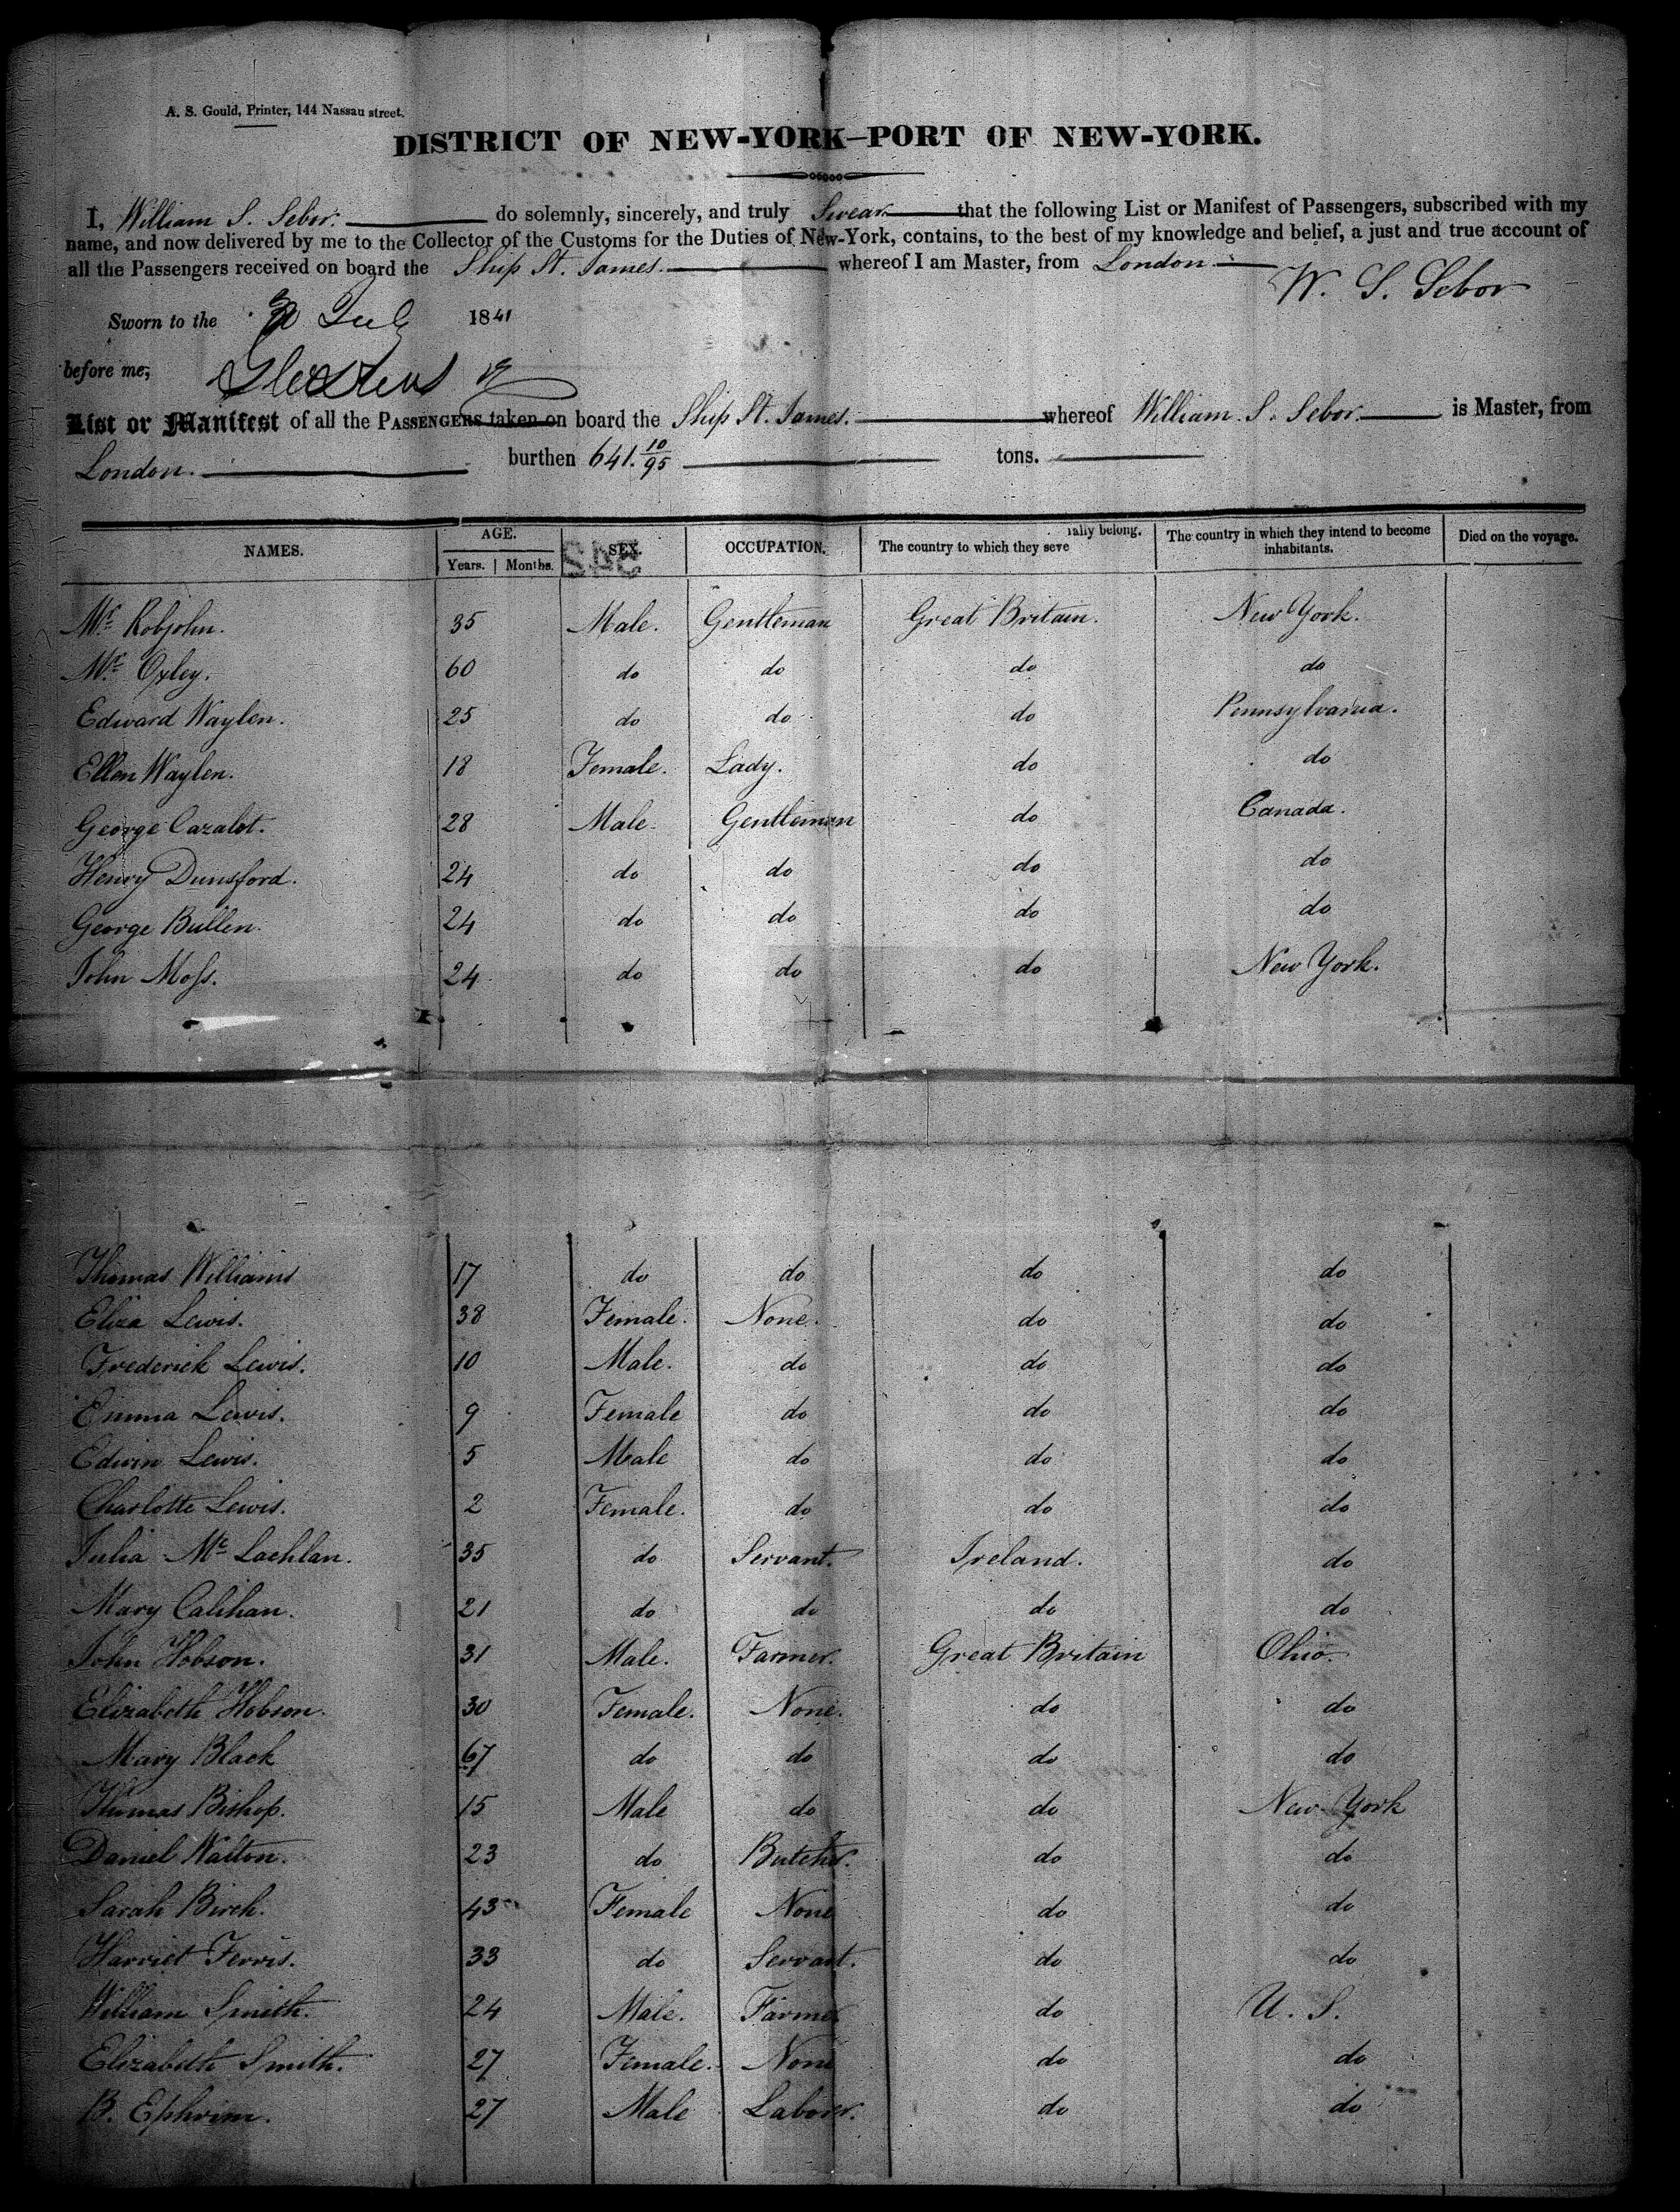 A. S. Gould, Printer, 144 Nassau street.
DISTRICT OF NEW-YORK—PORT OF NEW-YORK.
I, William S. Sebor. do solemnly, sincerely, and truly Swear that the following List or Manifest of Passengers, subscribed with my
name, and now delivered by me to the Collector of the Customs for the Duties of New-York, contains, to the best of my knowledge and belief, a just and true account of
all the Passengers received on board the Ship St. James. whereof I am Master, from London
W. S. Sebor
Sworn to the July 1841
before me,
List or Manifest of all the PASSENGERS taken on board the Ship St. James. whereof William S. Sebor. is Master, from
London. burthen 641. 10/95 tons.
NAMES. AGE. Years. Months. SEX. OCCUPATION. The country to which they seve rally belong. The country in which they intend to become inhabitants. Died on the voyage.
Mr. Robjohn. 35 Male. Gentleman Great Britain. New York.
Mr. Oxley. 60 do do do do
Edward Waylen. 25 do do do Pennsylvania.
Ellen Waylen. 18 Female. Lady. do do
George Cazalot. 28 Male. Gentleman do Canada.
Henry Dunsford. 24 do do do do
George Bullen. 24 do do do do
John Moss. 24 do do do New York.
Thomas Williams 17 do do do do
Eliza Lewis. 38 Female. None. do do
Frederick Lewis. 10 Male. do do do
Emma Lewis. 9 Female do do do
Edwin Lewis. 5 Male do do do
Charlotte Lewis. 2 Female. do do do
Julia Mc Lachlan. 35 do Servant. Ireland. do
Mary Calihan. 21 do do do do
John Hobson. 31 Male. Farmer. Great Britain Ohio.
Elizabeth Hobson. 30 Female. None. do do
Mary Black 67 do do do do
Thomas Bishop. 15 Male do do New York
Daniel Walton. 23 do Butcher. do do
Sarah Birch. 43 Female None do do
Harriet Ferris. 33 do Servant. do do
William Smith. 24 Male. Farmer do U. S.
Elizabeth Smith. 27 Female. None do do
B. Ephrim. 27 Male Laborer. do do